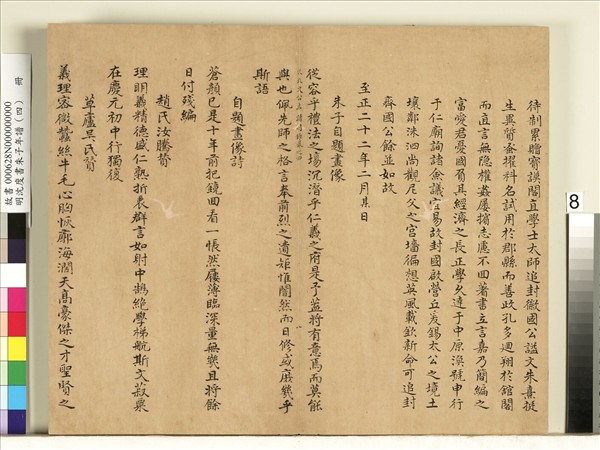 待制累贈寶謨閣直學士太師追封徽國公謚文朱熹挺
生異質蚤擢科名試用於郡縣而善政孔多迴翔於館閣
而直言無隱權姦屢擠志慮不回著書立言嘉乃簡編之
富愛君憂國負其經濟之長正學久達於中原渙號申行
于仁廟詢諸僉議宜易故封國啟營丘爰錫太公之境土
壤鄰洙泗尚觀尼父之宮墻緬想英風載欽新命可追封
齊國公餘並如故
至正二十二年二月某日
朱子自題畫像
從容乎禮法之場沉潛乎仁義之府是予蓋將有意焉而莫能
與也佩先師之格言奉前烈之遺矩惟闇然而日修或庶幾乎
斯語
自題畫像詩
蒼顏已是十年前把鏡回看一悵然履薄臨深量無幾且將餘
日付殘編
趙氏汝騰贊
理明義精德盛仁熟折衷群言如射中鵠絕學梯航斯文菽粟
在慶元初中行獨復
草廬吳氏贊
義理密微蠶絲牛毛心胸恢廓海濶天高豪傑之才聖賢之
故書000628N000000000 冊
明沈度書朱子年譜(四)
8